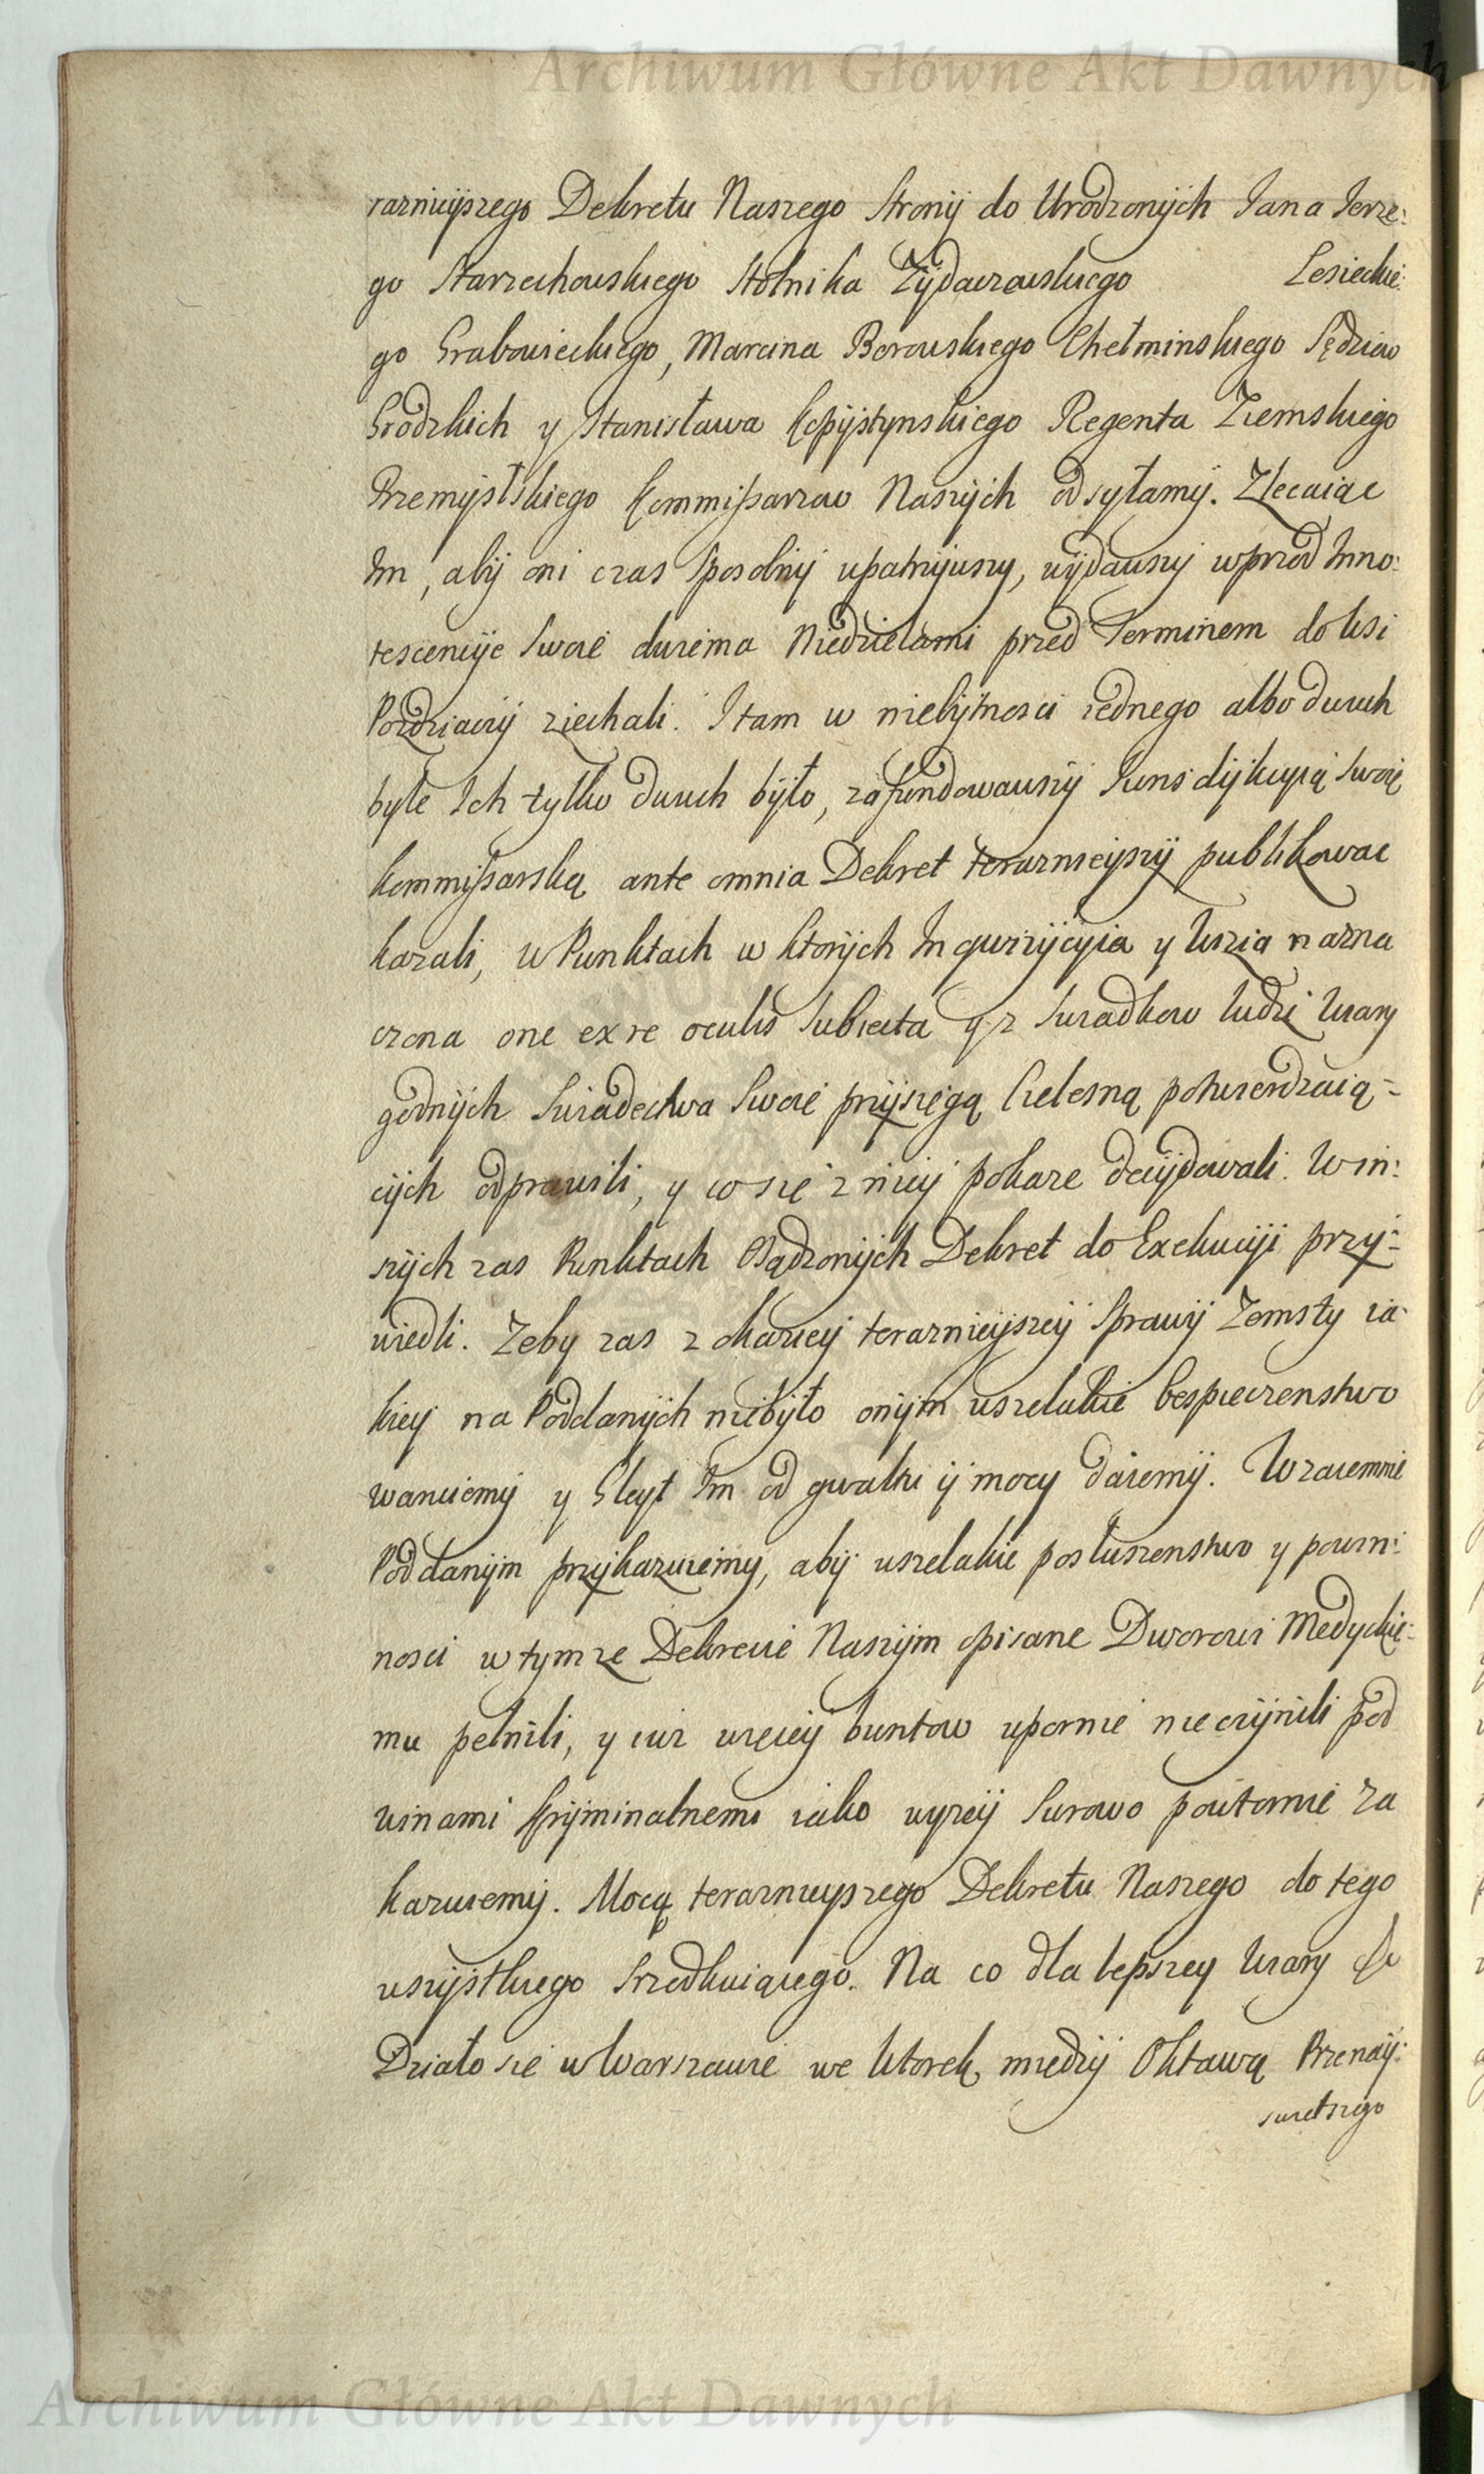 Archiwum Główne Akt Dawnych
raznieyszego Dekretu Naszego Strony do Urodzonych Iana Ierze:
go Starzechowskiego Stolnika Zydaczowskiego Lesieckie:
go Grabowieckiego, Marcina Borowskiego Chełminskiego Sędziow
Grodzkich y Stanisława Kopystynskiego Regenta Ziemskiego
Przemyslskiego Kommissarzow Naszych odsyłamy. Zlecaiąc
Im, aby oni czas sposobny upatrzywszy, wydawszy wprzod Inno:
tescencye swoie dwiema Niedzielami przed Terminem do Wsi
Pozdziaczy ziechali. I tam w niebytnosci iednego albo dwuch
byle Ich tylko dwuch było, zafundowawszy Iurisdykcyią swoię
Kommissarską ante omnia Dekret teraznieyszy publikowac
kazali, w Punktach w ktorych Inqwizycyia y Wizia nazna
czona one ex re oculis subiecta y z swiadkow ludzi Wiary
godnych Swiadectwa swoie przysięgą Cielesną potwierdzaią-
cych odprawili, y co się z niey pokaze decydowali. W in:
szych zas Punktach Osądzonych Dekret do Exekucyi przy:
wiedli. Zeby zas z okazyey teraznieyszey Sprawy Zemsty ia:
kiey na Poddanych niebyło onym wszelakie bespieczenstwo
waruiemy y Gleyt Im od gwałtu y mocy daiemy. Wzaiemnie
Poddanym przykazuiemy, aby wszelakie posłuszenstwo y powin:
nosci w tymze Dekrecie Naszym opisane Dworowi Medyckie:
mu pełnili, y iuz więcey buntow upornie nieczynili pod
winami kryminalnemi iako wyzey surowo powtornie za
kazuiemy. Mocą teraznieyszego Dekretu Naszego do tego
wszystkiego srzedkuiącego. Na co dla lepszey Wiary &c
Działo się w Warszawie we Wtorek między Oktawą Przenay:
swietszego
Archiwum Główne Akt Dawnych